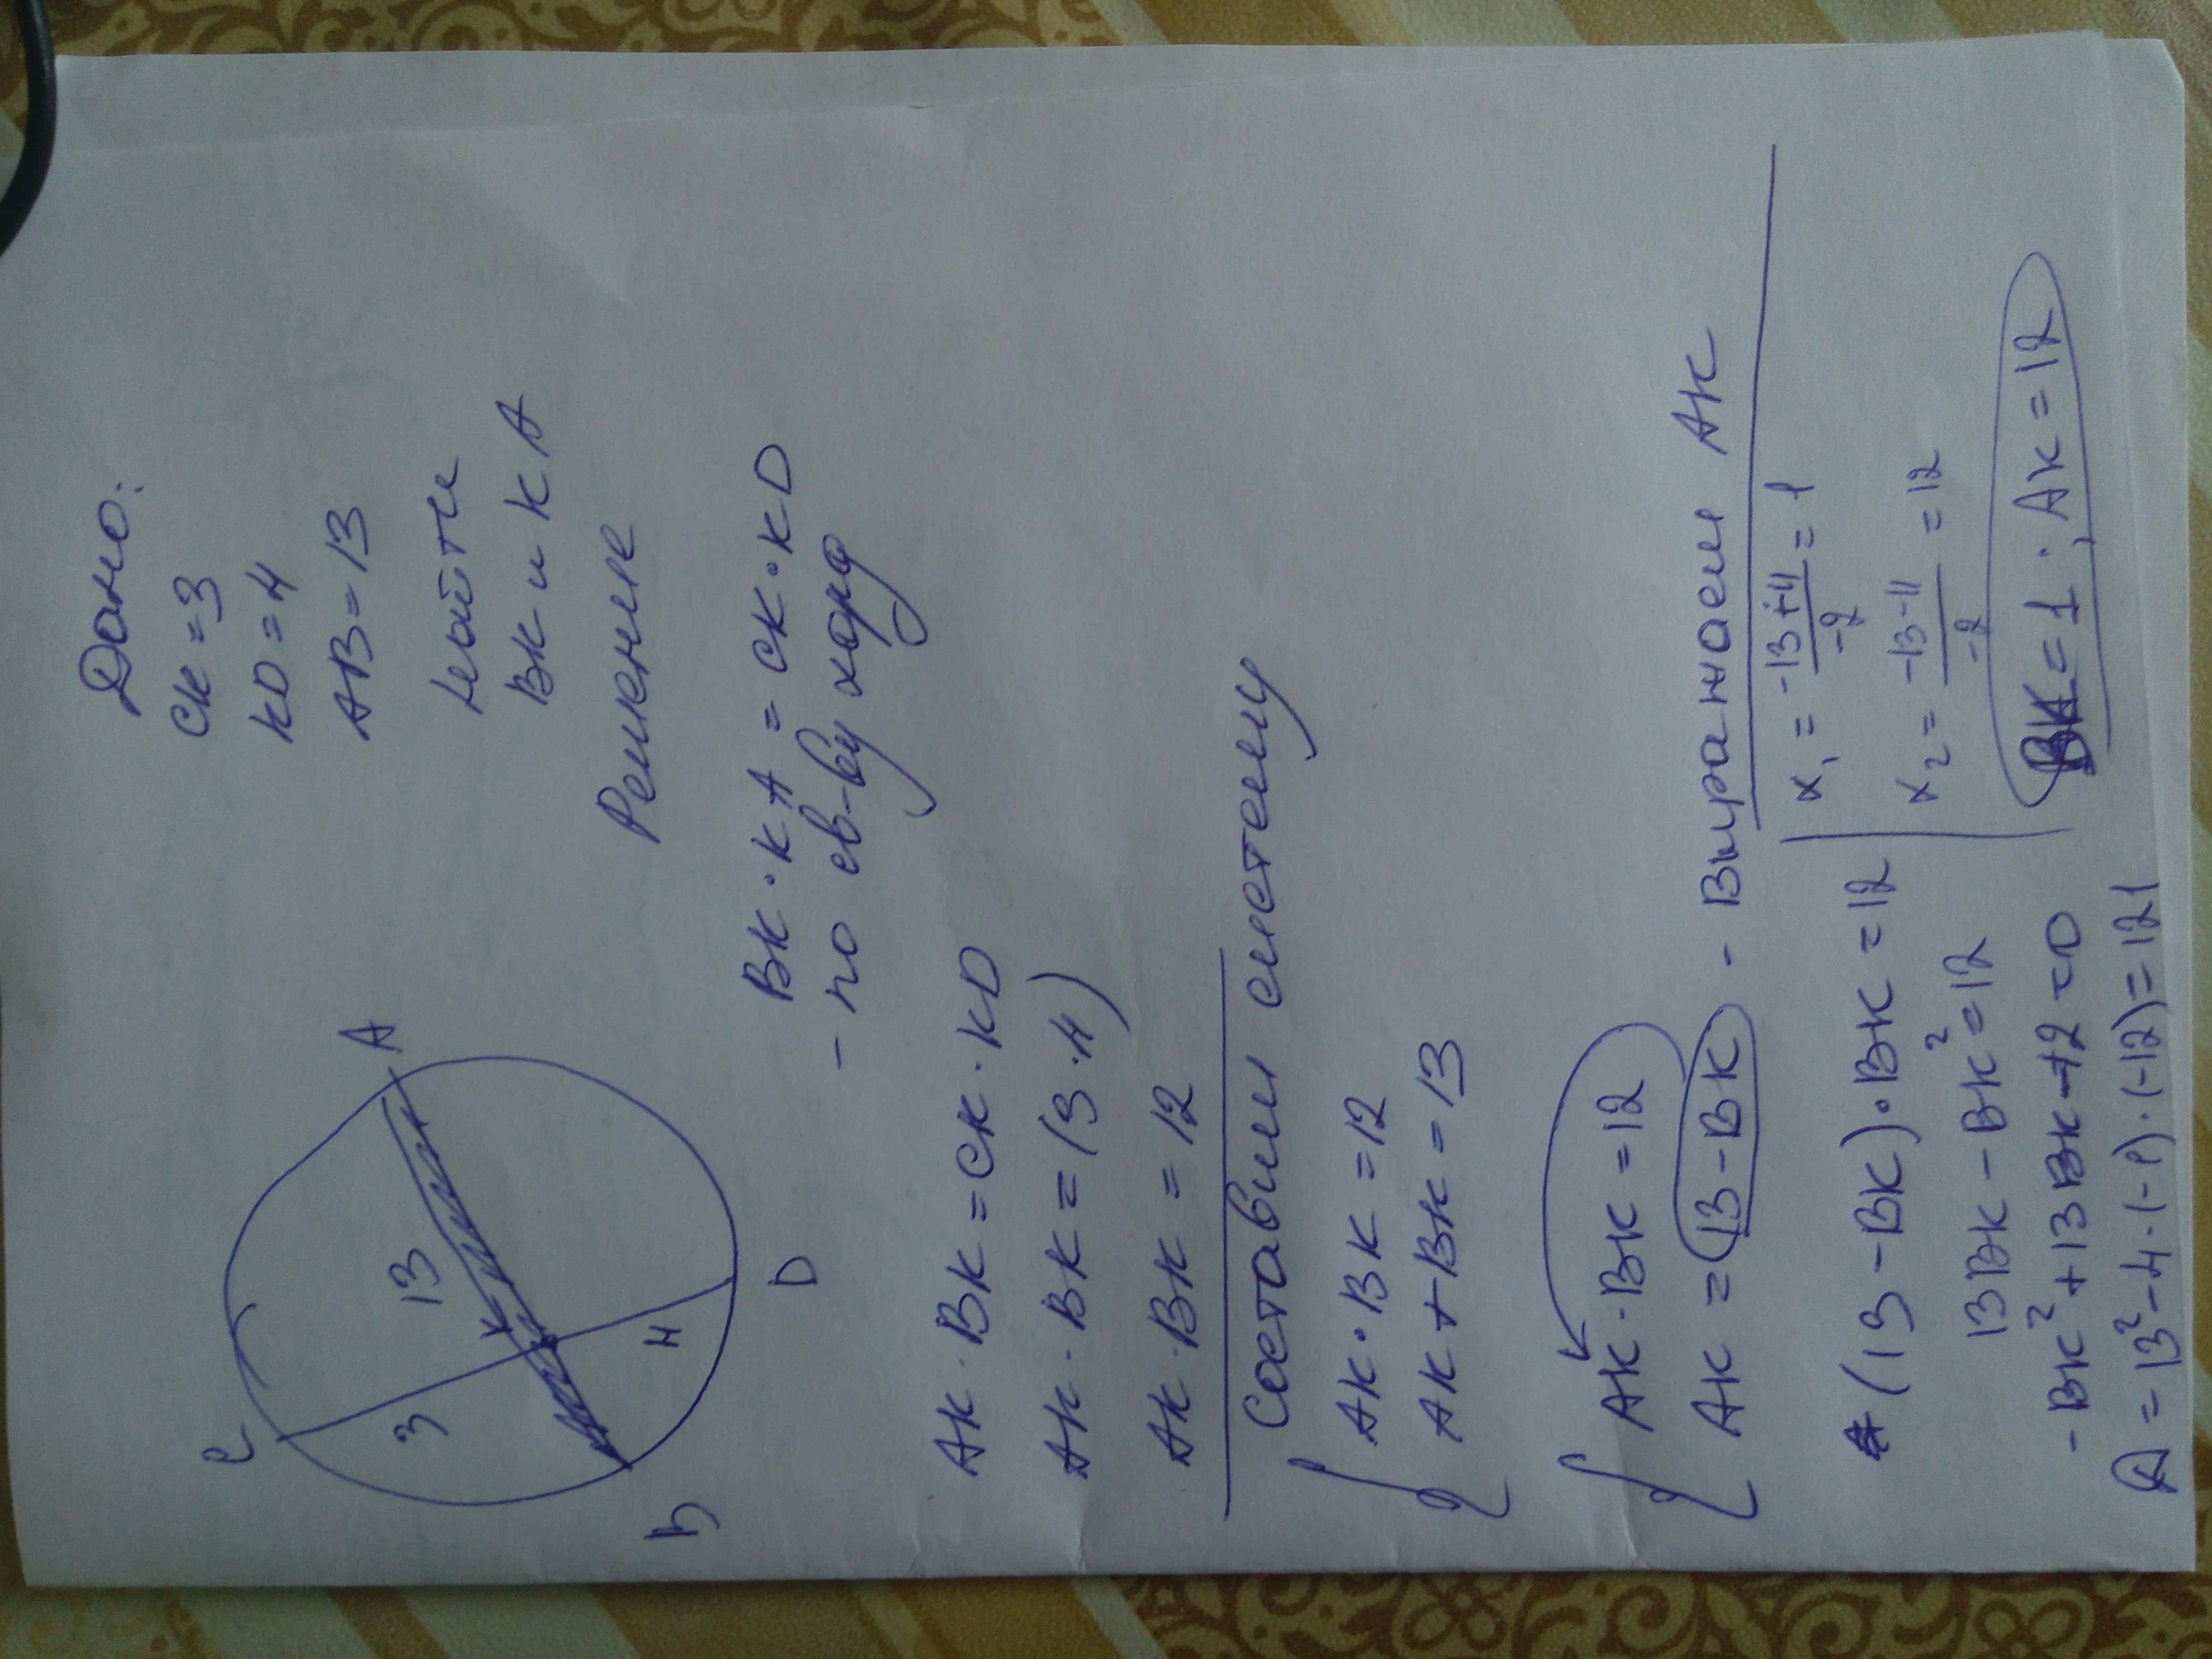 Дано:
СК = 3
KD = 4
AB = 13
Найти
BK и KA
Решение
C
A
13
K
3
4
B
D
BK · KA = CK · KD
- по св-ву хорд
AK · BK = CK · KD
AK · BK = (3 · 4)
AK · BK = 12
Составим систему
{ AK · BK = 12
AK + BK = 13
{ AK · BK = 12
AK = (13 - BK) - Выражаем AK
(13 - BK) · BK = 12
13BK - BK² = 12
-BK² + 13BK - 12 = 0
D = 13² - 4 · (-1) · (-12) = 121
x₁ = -13+11/-2 = 1
x₂ = -13-11/-2 = 12
BK = 1; AK = 12